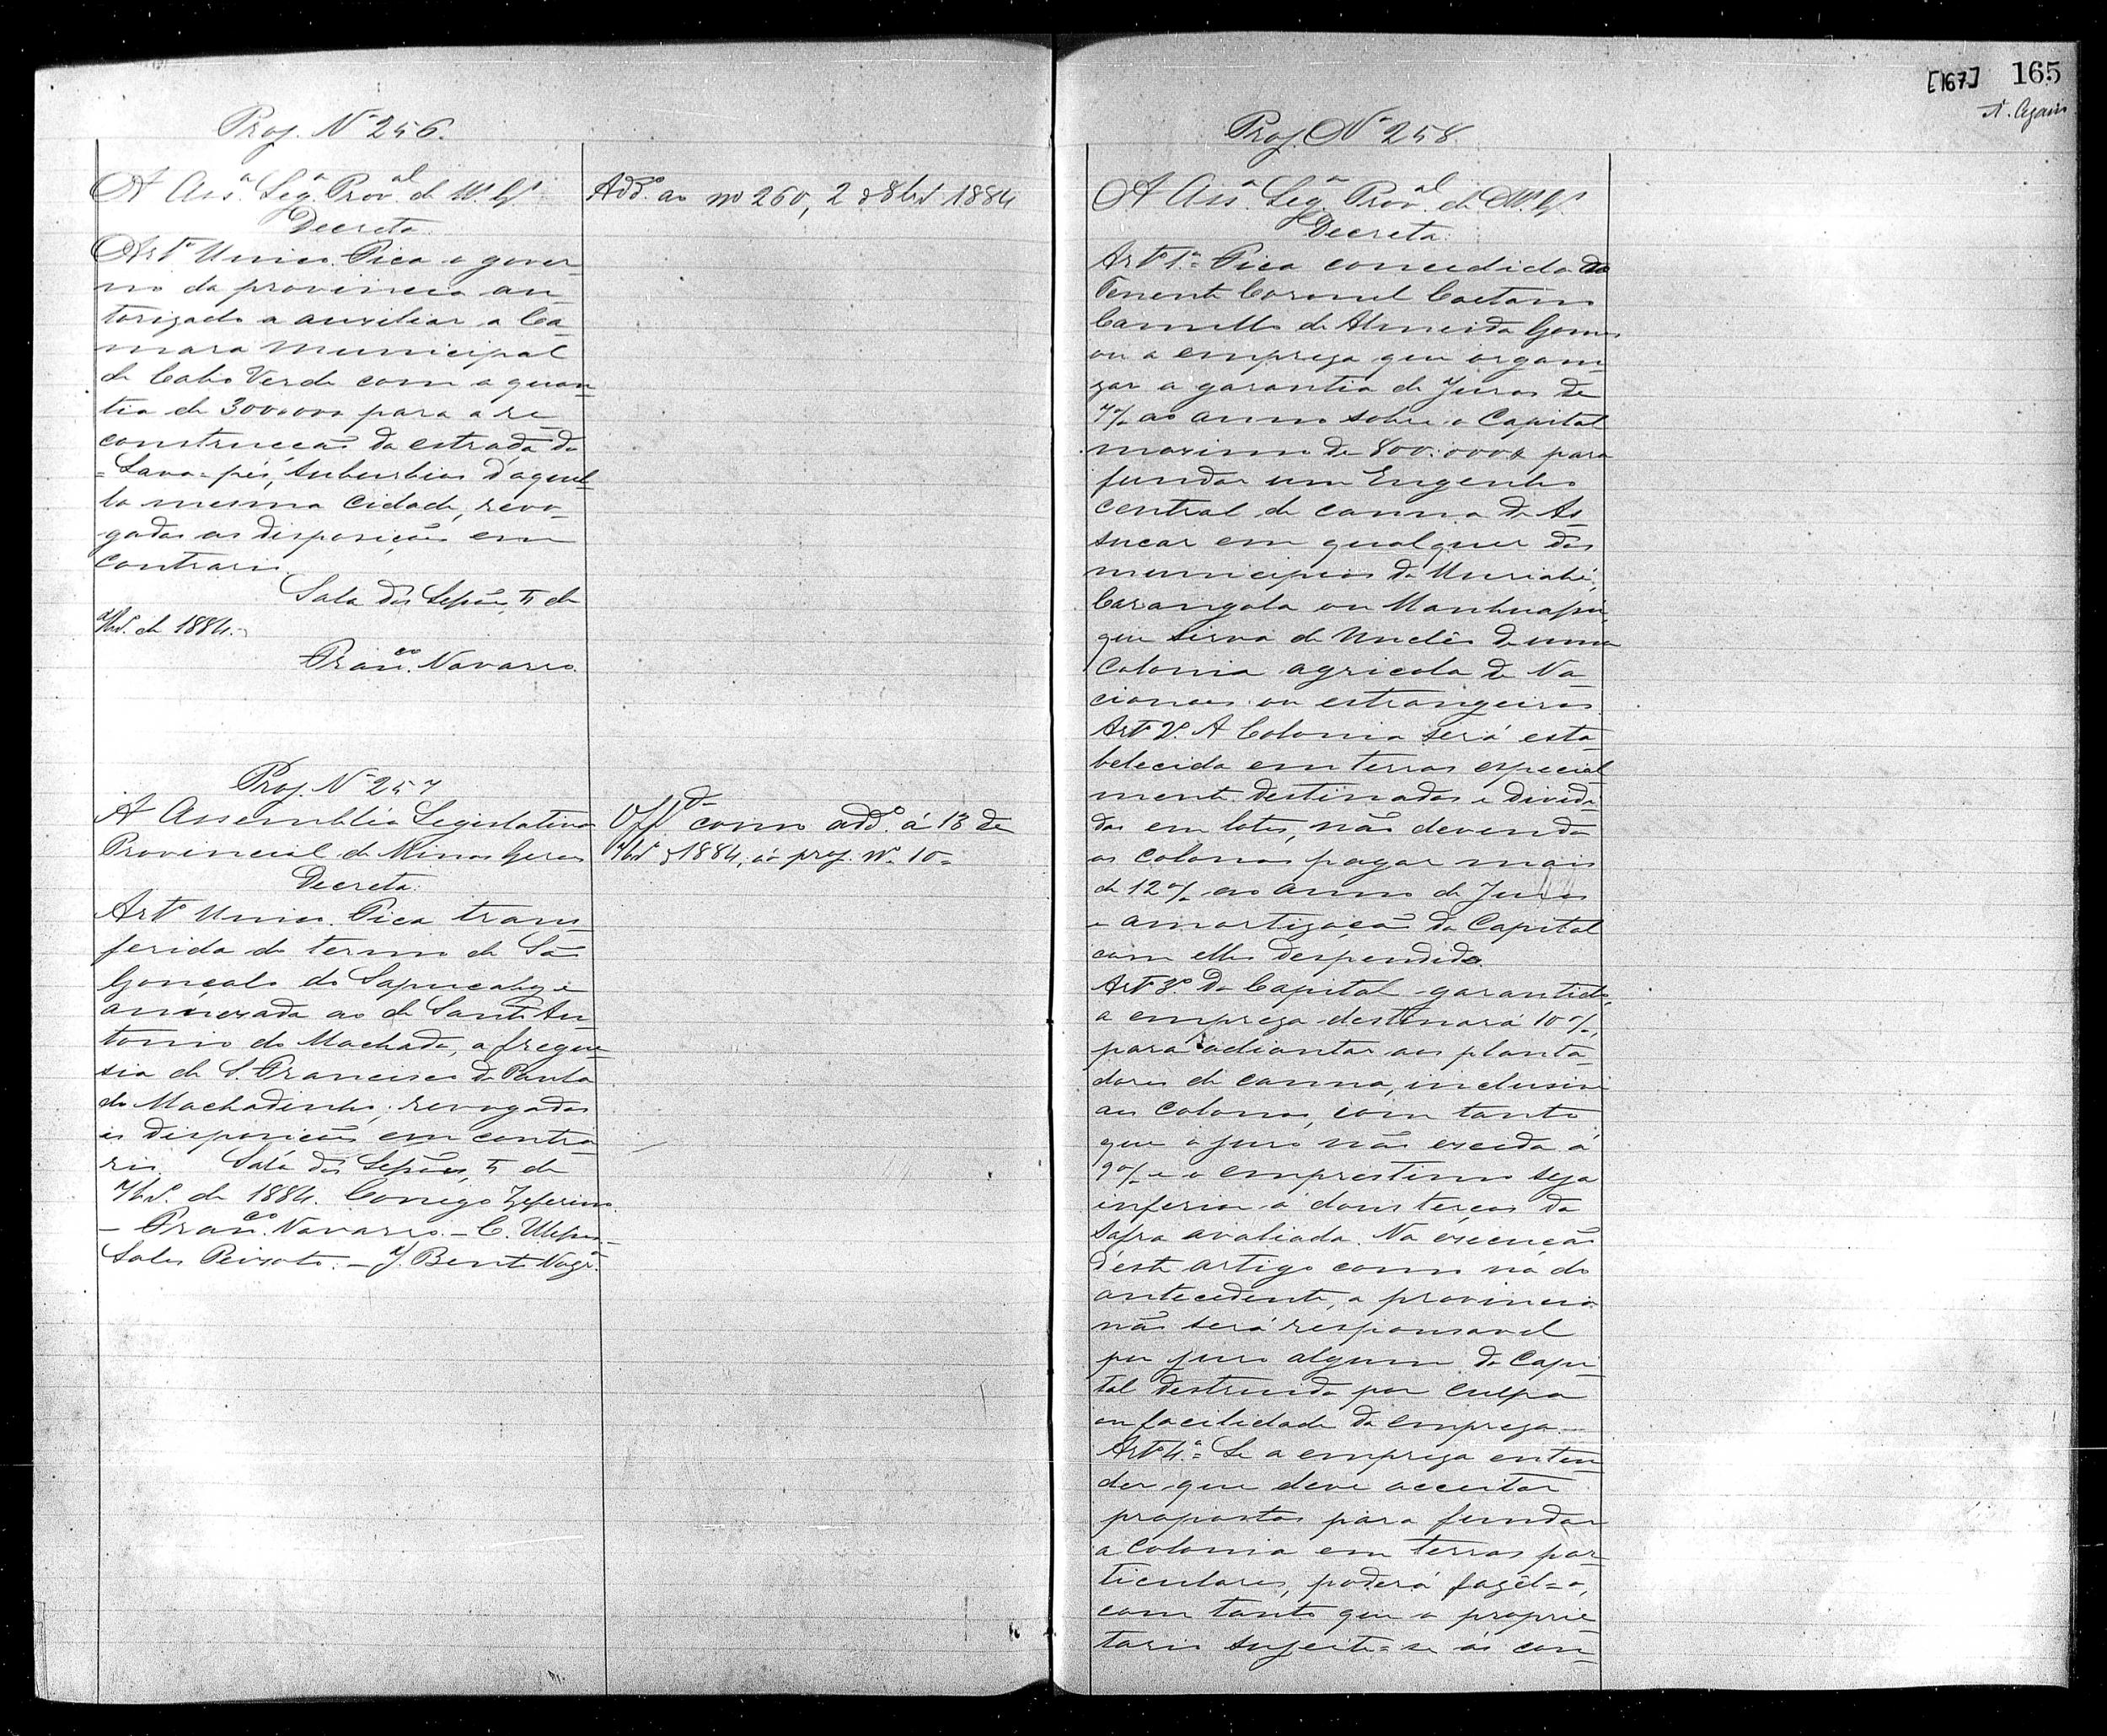 Proj. Nº 256.
A Ass.ª Leg.ª Prov.al de M. G.
Decreta
Artº Unico. Fica o gover-
no da provincia au-
torizado a auxiliar a Ca-
mara Municipal
de Cabo Verde com a quan-
tia de 300:000 para a re-
construcção da estrada do
=Lava-pés, suburbios d'aquel-
la mesma Cidade, revo-
gadas as disposições em
contrario.
Sala das Sessões, 5 de
7br. de 1884.
Fran.co Navarro.
Add.º ao nº 260, 2 d 8br 1884
Proj. Nº 257
A Assembléa Legislativa
Provincial de Minas Geraes
Decreta:
Artº Unico. Fica trans-
ferida do termo de São
Gonçalo do Sapucahy e
annexada ao de Santo An-
tonio do Machado, a fregue-
sia de S. Francisco de Paula
do Machadinho; revogadas
as disposições em contra-
rio. Sala das Sessões, 5 de
7br. de 1884. Conego Zeferino.
– Fran.co Navarro. – C.
Salles Peixoto. – J. Bento Nogr.ª
Off.da como add.º á 13 de
7br d 1884, ao proj. Nº 10=
[167] 165
Proj. Nº 258.
A Ass.ª Leg.ª Prov.al de M. G.
Decreta:
Artº 1.º Fica concedida ao
Tenente Coronel Caetano
Camillo de Almeida Gomes
ou a empreza que organi-
zar a garantia de Juros de
7% ao anno sobre o Capital
maximo de 800:000$ para
fundar um Engenho
Central de canna de As-
sucar em qualquer dos
municipios de Muriahé,
Carangola ou Manhuassú,
que sirva de Nucleo de uma
Colonia agricola de Na-
cionaes ou estrangeiros.
Artº 2º. A Colonia será esta-
belecida em terras especial-
mente destinadas e dividi-
das em lotes, não devendo
os colonos pagar mais
de 12% ao anno de Juros
e amortização do Capital
com elles despendido.
Artº 3º. Do Capital garantido,
a empreza destinará 10%,
para adiantar aos planta-
dores de canna, inclusive
aos Colonos, com tanto
que o juro não exceda á
9% e o emprestimo seja
inferior á dous terços da
safra avaliada. Na execução
d'este artigo como na do
antecedente, a provincia
não será responsavel
por juro algum do Capi-
tal destruido por culpa
ou facilidade da empreza.
Artº 4.º Se a empreza enten-
der que deve acceitar
propostas para fundar
a Colonia em terras par-
ticulares, poderá fazel-o,
com tanto que o proprie-
tario sujeite-se ás con-